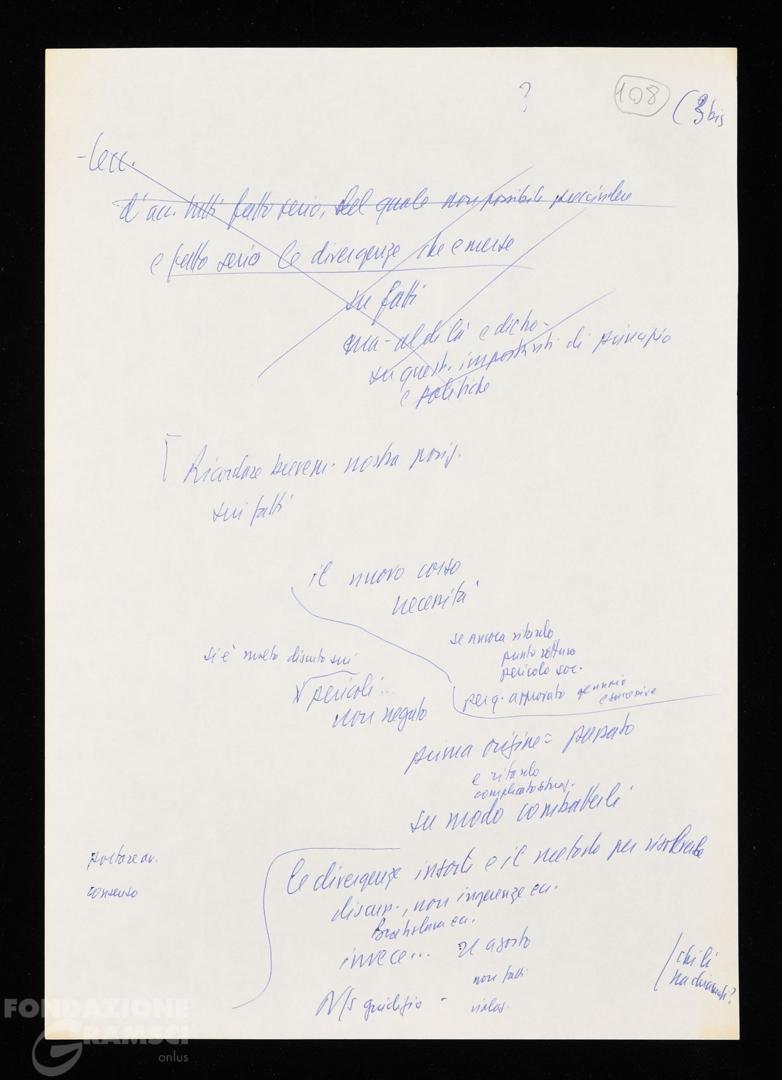 ?
108
(3 bis
- Cecc.
d'acc. tutti fatto serio, del quale non possibile prescindere
e fatto serio le divergenze che emerse
su fatti
ma - al di là e dicho -
su quest. importanti di principio
e politiche
Ricordare brevem. nostra posiz.
sui fatti
il nuovo corso
necessità
se ancora ritardo
punto rottura
pericolo soc.
perq. approvato gennaio
e successive
si è molto discusso sui
pericoli...
non negato
prima origine = passato
e ritardo
su modo combatterli
portare av.
consenso
le divergenze insorte e il metodo per risolverle
discuss., non ingerenze ecc.
Bratislava ecc.
invece... 21 agosto
non fatti
N/s giudizio -
violaz.
chi li
ha chiamati?
FONDAZIONE
GRAMSCI
onlus